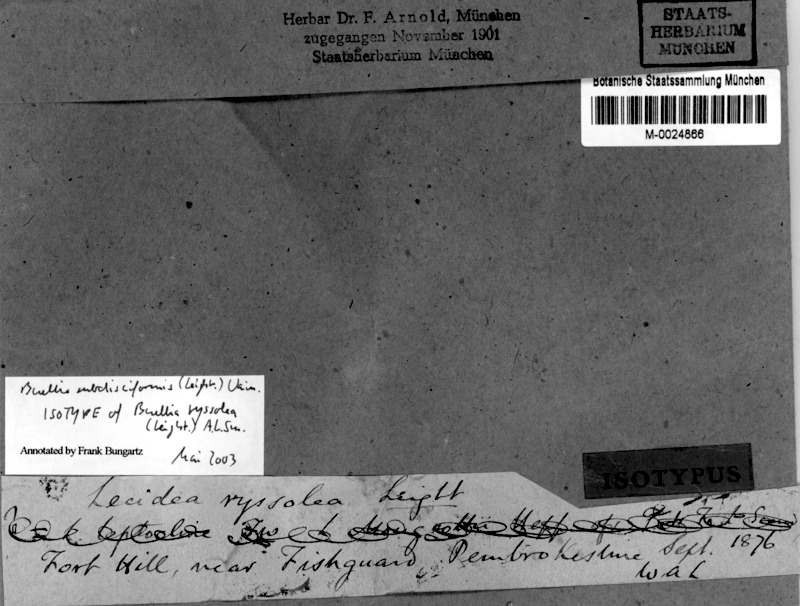 Herbar Dr. F. Arnold, München
zugegangen November 1901
Staatsherbarium München
STAATS-
HERBARIUM
MÜNCHEN
Botanische Staatssammlung München
M-0024866
Buellia subdisciformis (Leight.) Vain.
ISOTYPE of Buellia ryssolea
(Leight.) A.L.Sm.
Annotated by Frank Bungartz
Mai 2003
ISOTYPUS
Lecidea ryssolea Leight
Fort Hill, near Fishguard, Pembrokeshire Sept. 1876
W A L